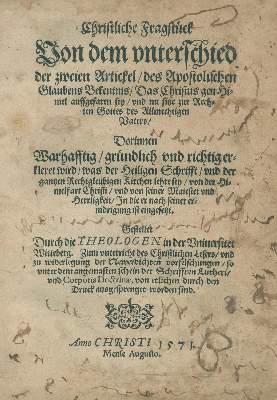 Christliche Fragstück
Von dem vnterschied
der zweien Artickel / des Apostolischen
Glaubens Bekentnis / Das Christus gen Hi-
mel auffgefaren sey / vnd nu sitze zur Rech-
ten Gottes des Allmechtigen
Vaters /
Dorinnen
Warhafftig / gründlich vnd richtig er-
kleret wird / was der Heiligen Schrifft / vnd der
gantzen Rechtgleubigen Kirchen lehre sey / von der Hi-
melfart Christi / vnd von seiner Maiestet vnd
Herrligkeit / In die er nach seiner er-
nidrigung ist eingesetzt.
Gestellet
Durch die THEOLOGEN in der Vniuersitet
Witteberg. Zum vnterricht des Christlichen Lesers / vnd
zu widerlegung der verfelschungen / so
vnter dem angemasten schein der Schrifften Lutheri /
vnd Corporis Doctrinæ, von etlichen durch den
Druck ausgesprenget worden sind.
Anno CHRISTI 1571.
Mense Augusto.